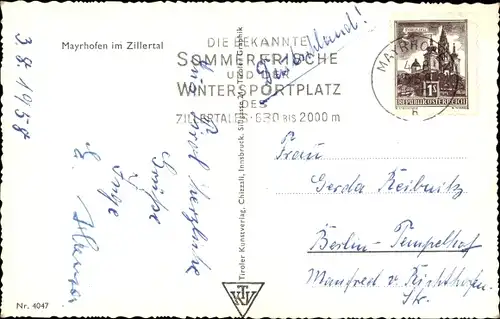 Mayrhofen im Zillertal
3.8.1958
DIE BEKANNTE
SOMMERFRISCHE
UND DER
WINTERSPORTPLATZ
DES
ZILLERTALES · 630 BIS 2000 m
MAYRHO
REPUBLIK ÖSTERREICH
Deutschland!
herzliche
Grüße
Inge
Tiroler Kunstverlag, Chizzali, Innsbruck, Sillgasse 21, Tiroler Graphik
Frau
Gerda Reibnitz
Berlin-Tempelhof
Manfred v. Richthofen-
Str.
Nr. 4047